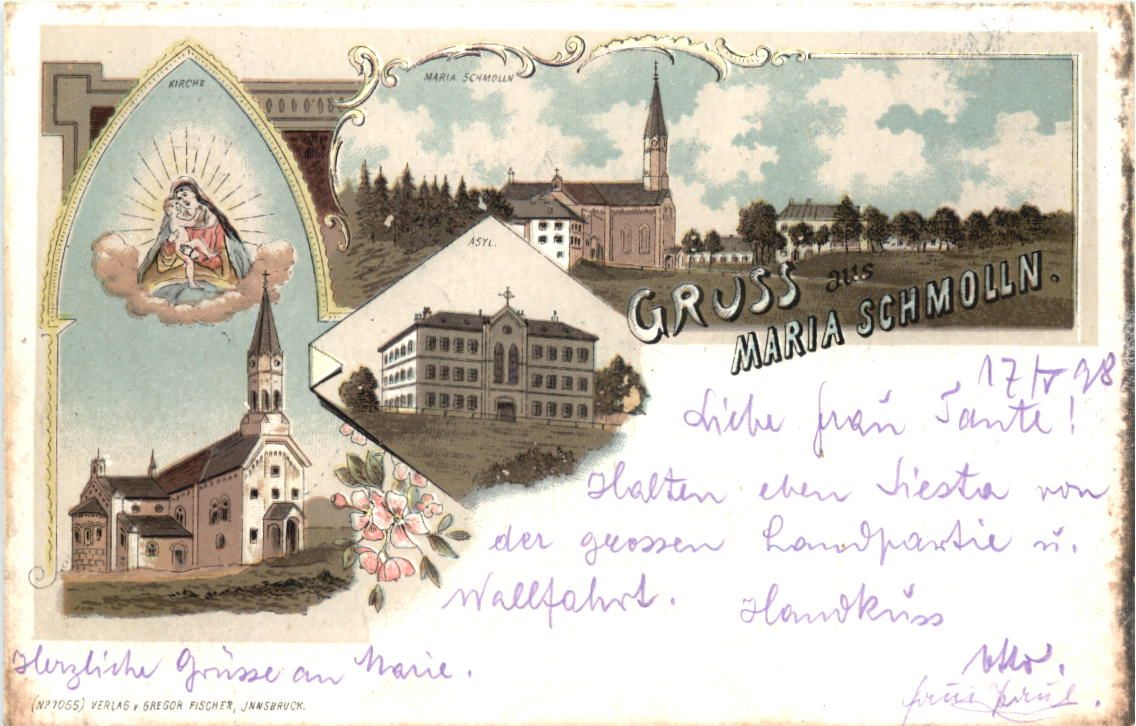 KIRCHE
MARIA SCHMOLLN
ASYL.
GRUSS aus
MARIA SCHMOLLN.
17/V 98
Liebe Frau Tante!
Halten eben Siesta von
der grossen Landpartie u.
Wallfahrt. Handkuss
Herzliche Grüsse an Marie.
(No 7055) VERLAG v GREGOR FISCHER, JNNSBRUCK.